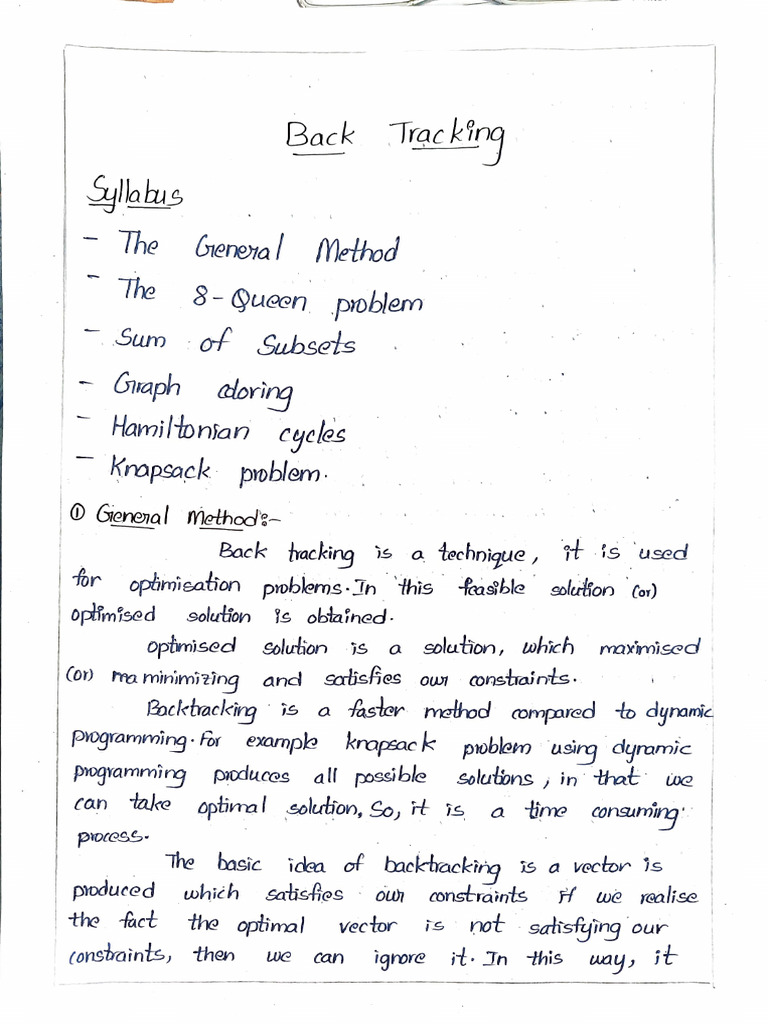 Back Tracking
Syllabus
- The General Method
- The 8-Queen problem
- Sum of Subsets
- Graph coloring
- Hamiltonian cycles
- Knapsack problem.
① General Method:-
Back tracking is a technique, it is used
for optimisation problems. In this feasible solution (or)
optimised solution is obtained.
optimised solution is a solution, which maximised
(or) ma minimizing and satisfies our constraints.
Backtracking is a faster method compared to dynamic
programming. For example knapsack problem using dynamic
programming produces all possible solutions, in that we
can take optimal solution, So, it is a time consuming
process.
The basic idea of backtracking is a vector is
produced which satisfies our constraints if we realise
the fact the optimal vector is not satisfying our
constraints, then we can ignore it. In this way, it